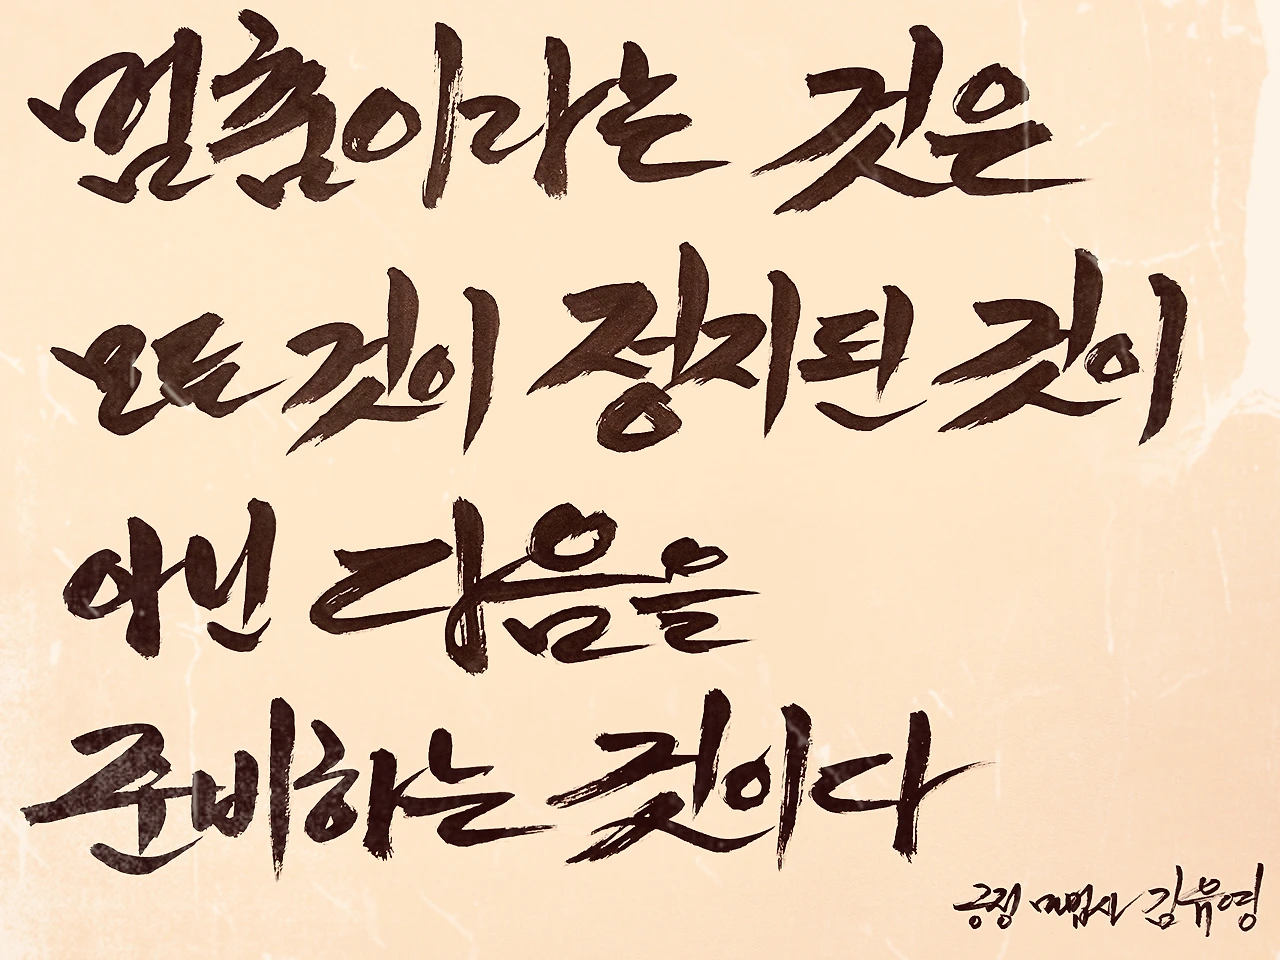 멈춤이라는 것은
모든 것이 정지된 것이
아닌 다음을
준비하는 것이다
긍정 마법사 김유영